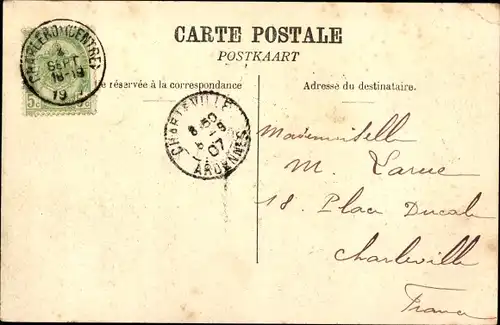 CARTE POSTALE
POSTKAART
CHARLEROI (CENTRE)
SEPT
18-19
19
5c
e réservée à la correspondance
Adresse du destinataire.
CHARLEVILLE
8 50
07
ARDENNES
Mademoiselle
M. Larue
18. Place Ducale
Charleville
France